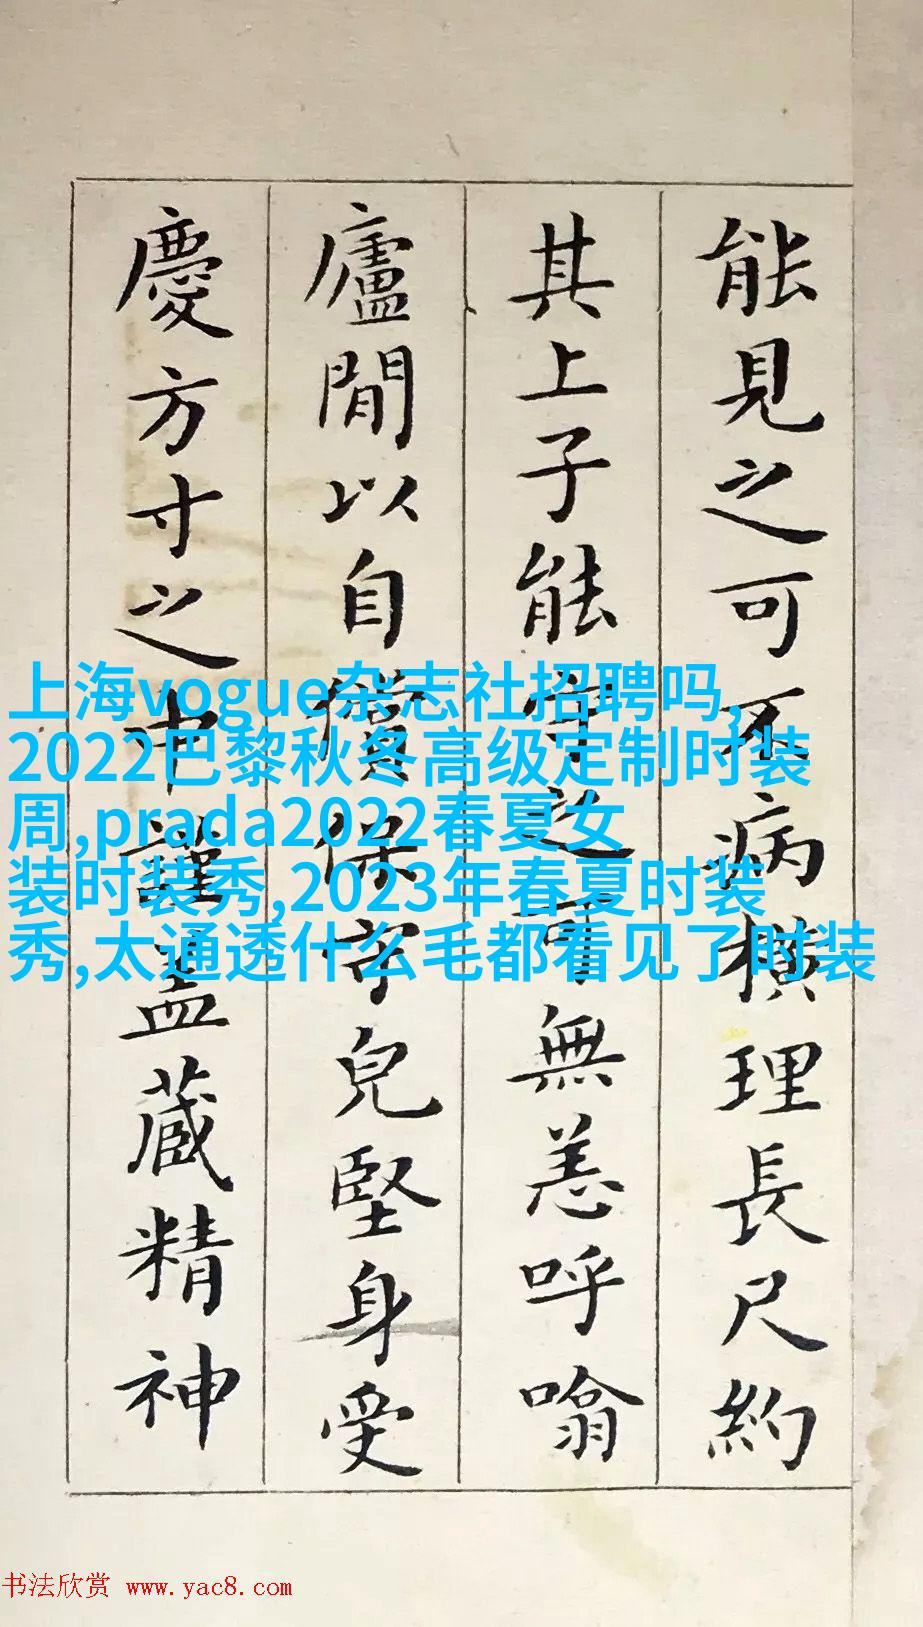 能見之可不病橫理長尺約
其上子能守之可無恙呼噏
廬閒以自償保守皃堅身受
慶方寸之中謹蓋藏精神
上海vogue杂志社招聘吗,
2022巴黎秋冬高级定制时装
周,prada2022春夏女
装时装秀,2023年春夏时装
秀,太通透什么毛都看见了时装
书法欣赏 www.yac8.com